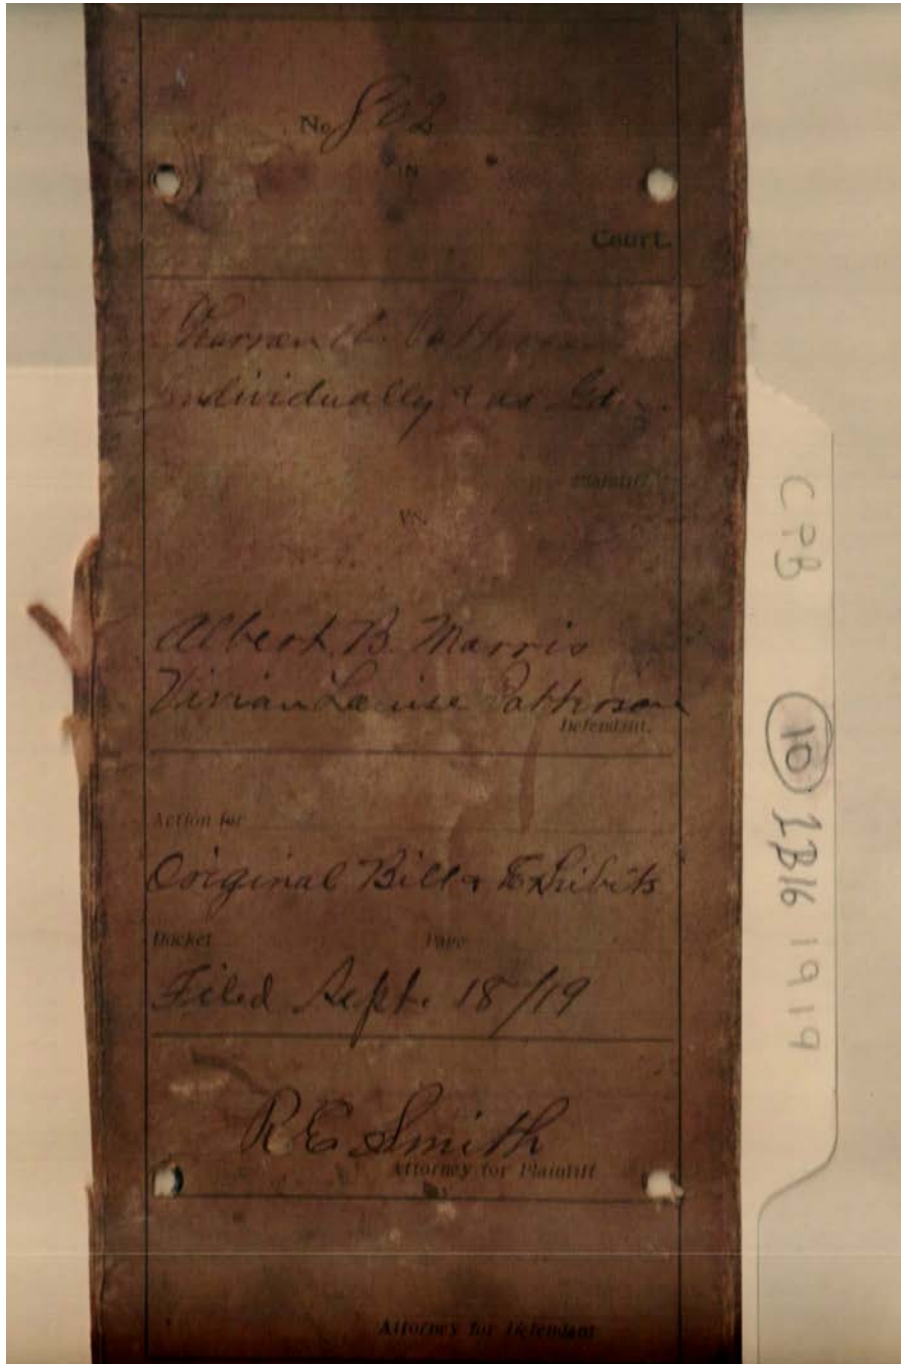 No. 802
IN
Court.
Individually & as Gdn.
Plaintiff
vs.
Albert B. Morris
Vivian Louise Patterson
Defendant.
Action for
Original Bill & Exhibits
Docket Page
Filed Sept. 18/19
R E Smith
Attorney for Plaintiff
Attorney for Defendant
CPB 10 1B16 1919